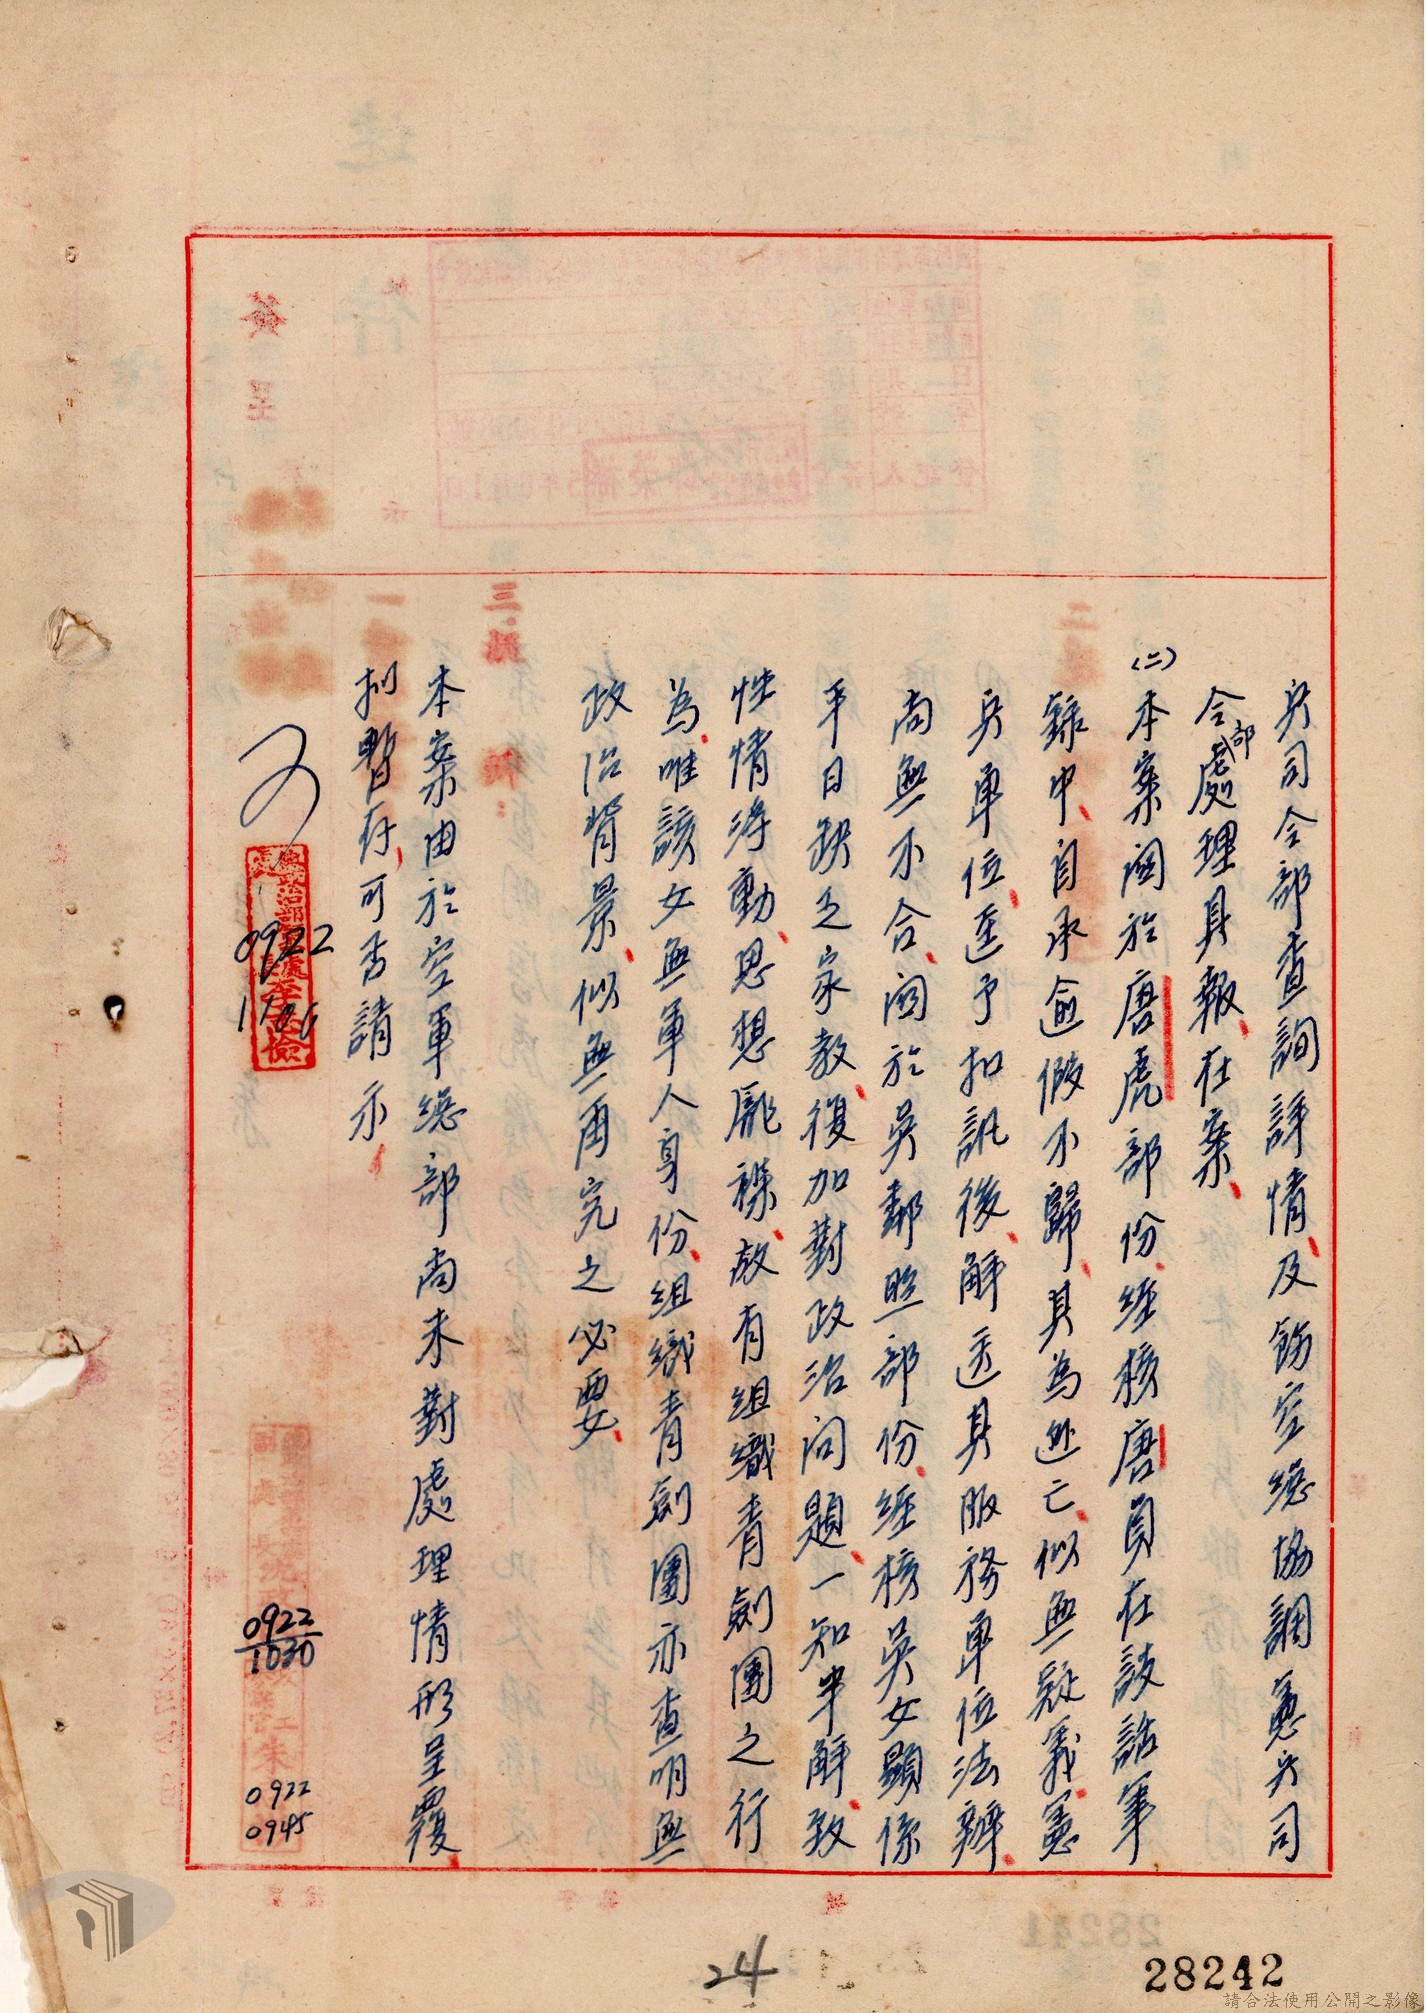 兵司令部查詢詳情、及飭空總協調憲兵司
令部處理具報、在案、
(二)本案関於唐虎部份、經核唐員在談話筆
錄中、自承逾假不歸、其為逃亡、似無疑義、憲
兵單位、逕予扣訊後、解送其服務單位法辦、
尚無不合、関於吳鄰熙部份、經核吳女顯係
平日缺乏家教、復加對政治问題、一知半解、致
性情浮動、思想龐襍、故有組織青劍團之行
為、唯該女無軍人身份、組織青劍團亦查明無
政治背景、似無再究之必要、
本案由於空軍總部尚未對處理情形呈覆、
扣暫存、可否請示、
簽呈
0922
0922
1030
0922
0945
24
28242
請合法使用公開之影像